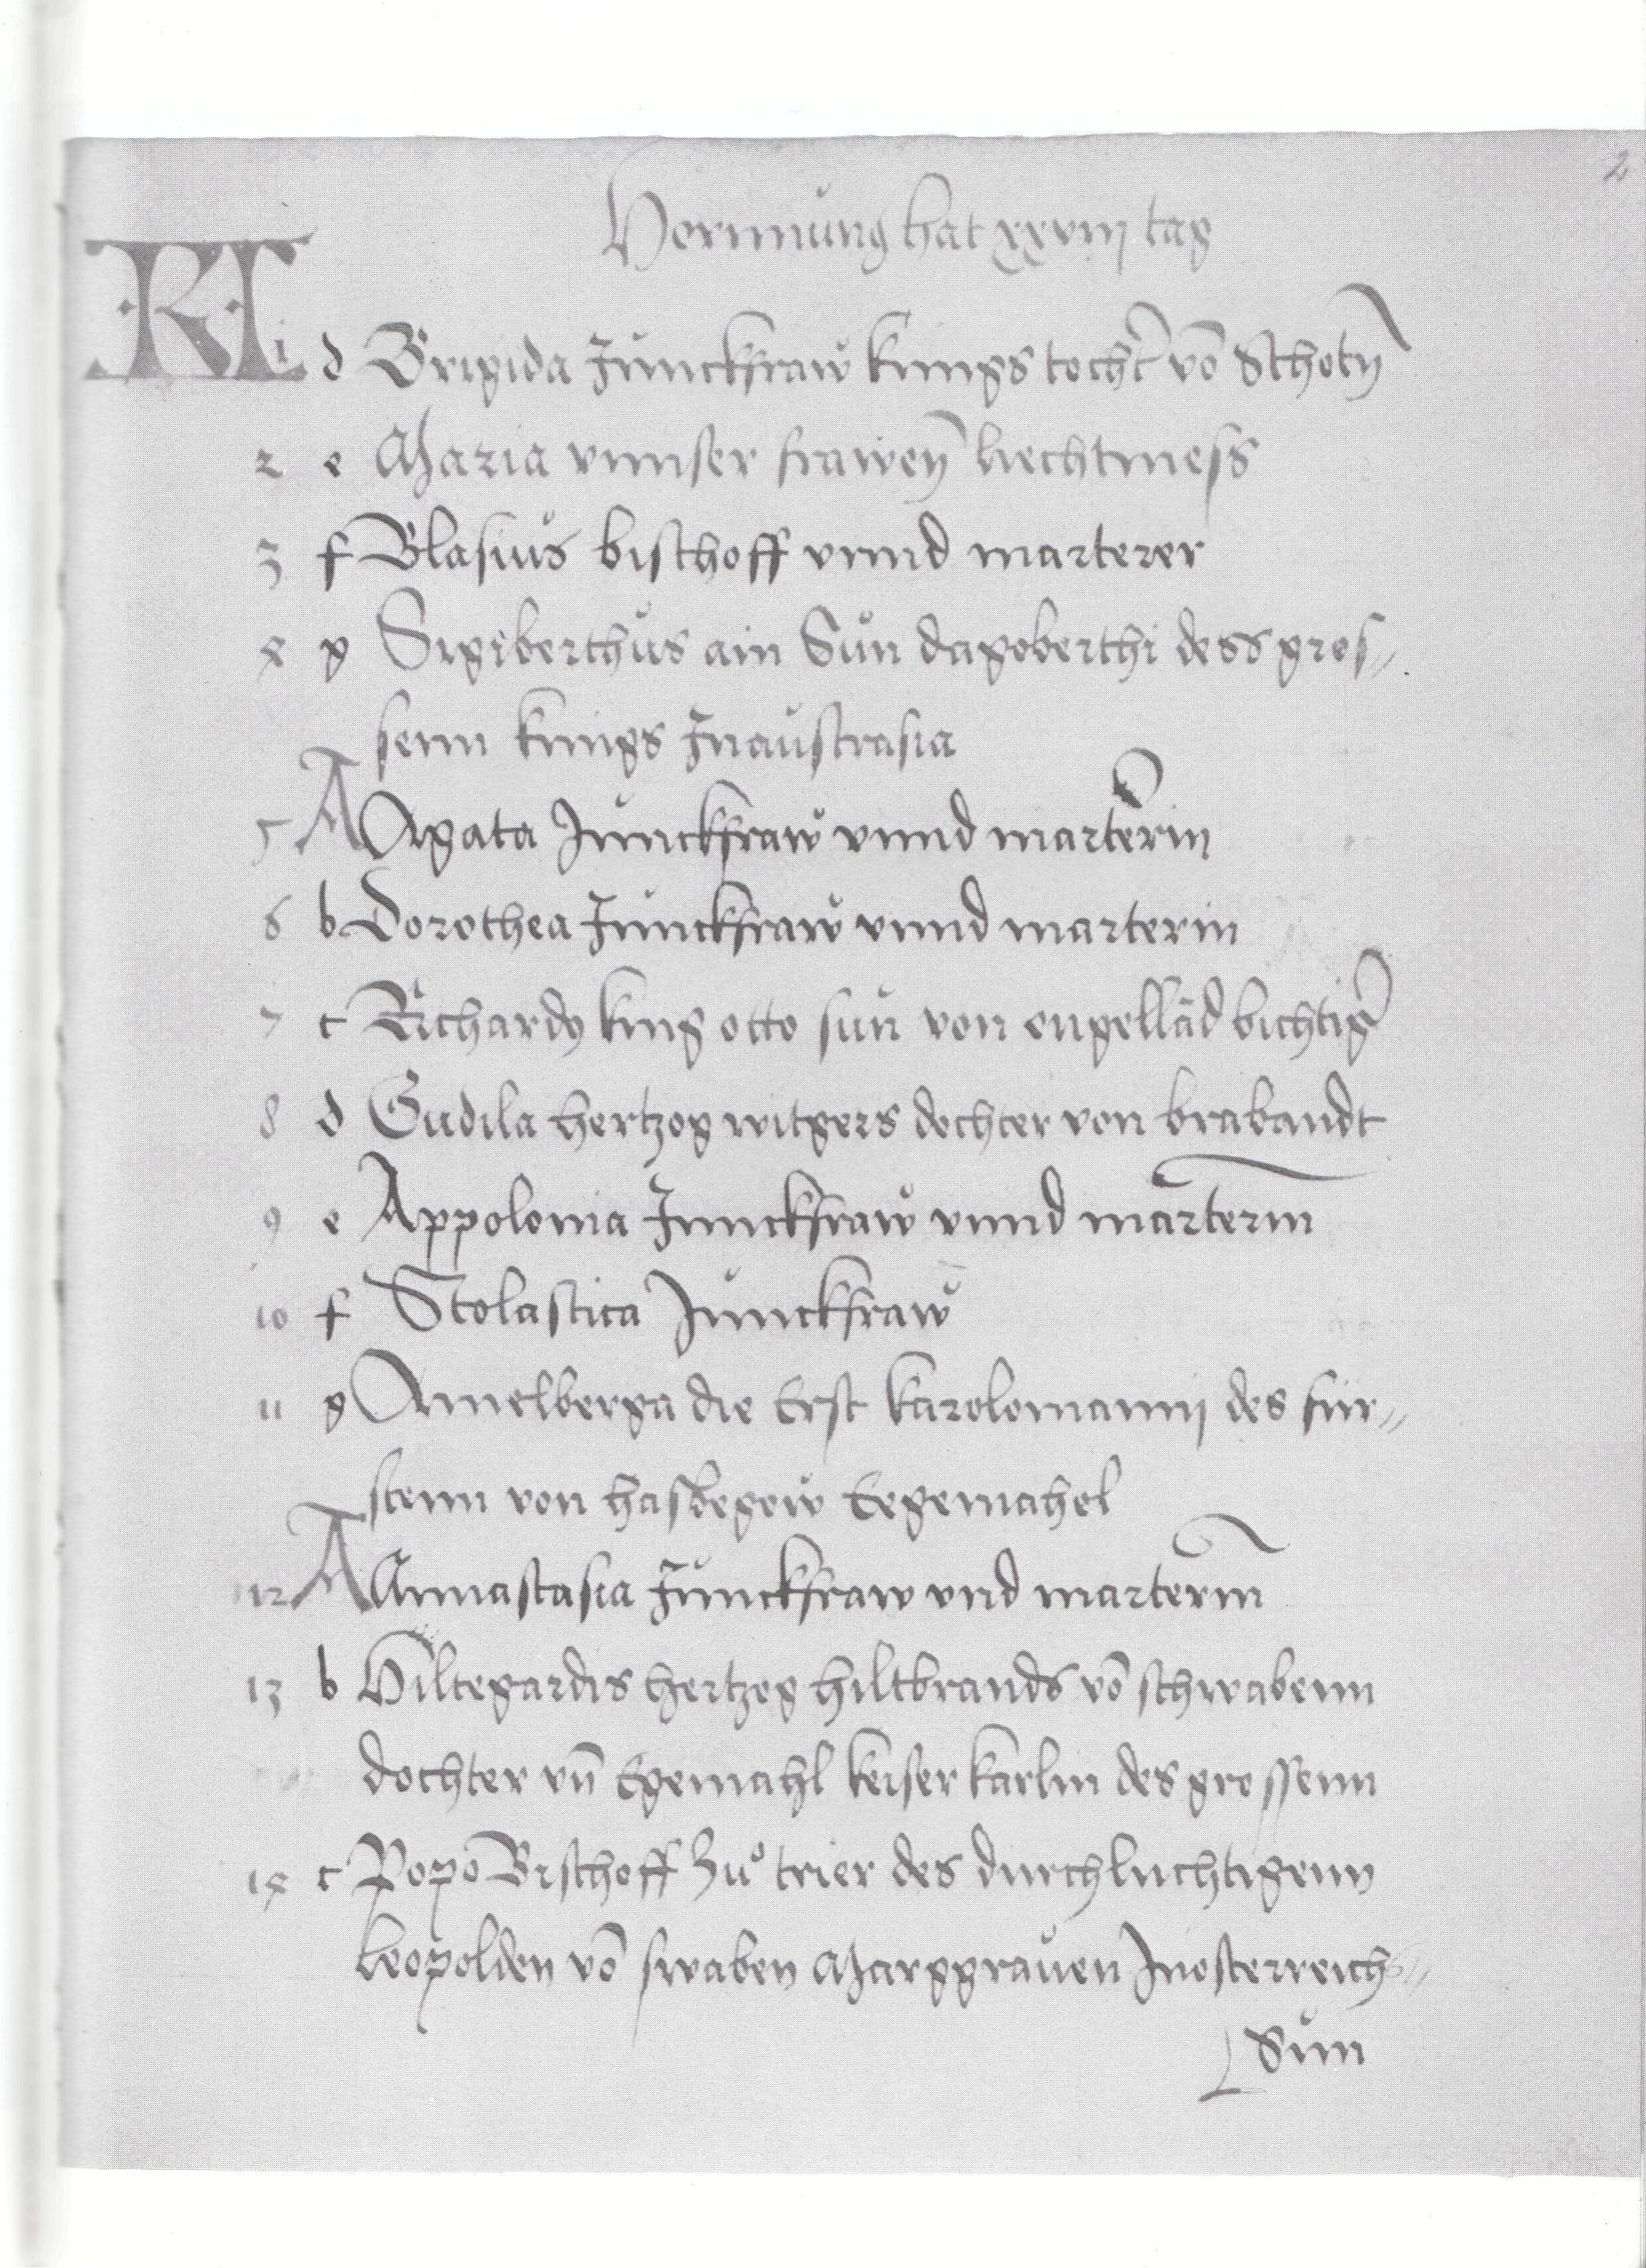 2
Hornnung hat xxviij tag
KL
1 d Brigida Junckfraw kungs tocht vō Schotn
2 e Maria vnnser frawen liechtmess
3 f Blasius bischoff vnnd marterer
4 g Sigiberthus ain Sun dagoberthi dess gros„
senn kungs Inaustrasia
5 A Agata Junckfraw vnnd marterin
6 b Dorothea Junckfraw vnnd marterin
7 c Richardg king otto sun von engellād bichtig
8 d Gudila hertzog witgers dochter von brabandt
9 e Appolonia Junckfraw vnnd marterin
10 f Scolastica Junckfraw
11 g Amelberga die Erst karolomannj des für„
stenn von Eegemahel
12 A Annastasia Junckfraw vnd marterin
13 b Hiltegardis hertzog hiltbrands vō schwabenn
dochter vn̄ Egemahl keiser karlin des grossenn
14 c Popo Bischoff Zů trier des durchluchtigenn
leopolden vō swaben Marggrauen Inosterreichs„
Sun